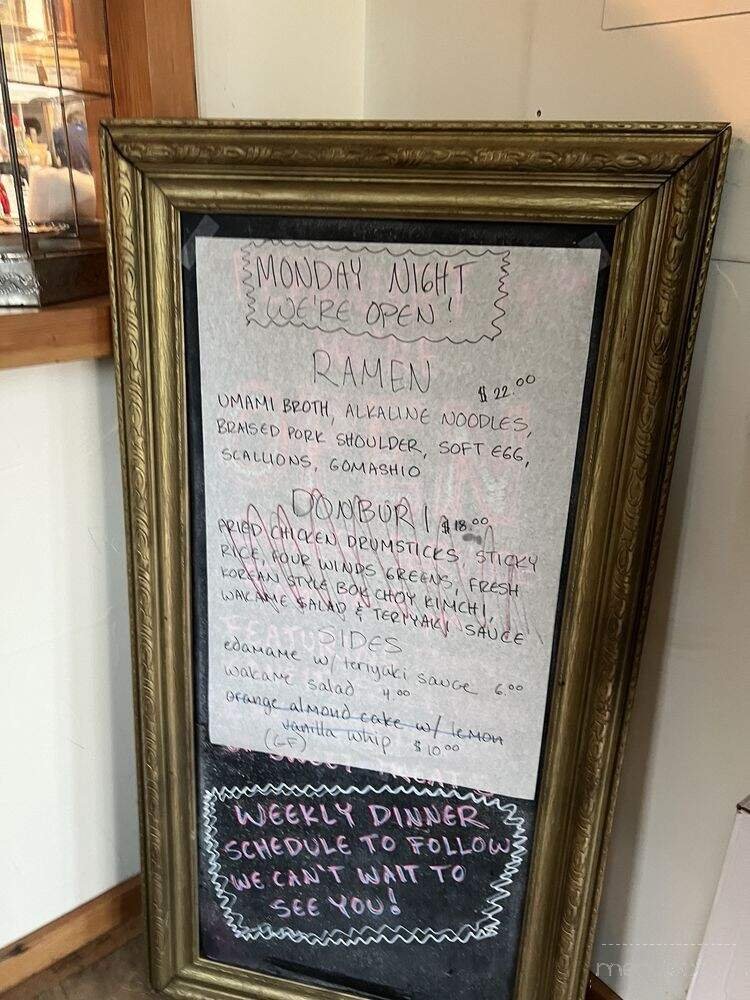 MONDAY NIGHT
WE'RE OPEN!
RAMEN $22.00
UMAMI BROTH, ALKALINE NOODLES,
BRAISED PORK SHOULDER, SOFT EGG,
SCALLIONS, GOMASHIO
DONBURI $18.00
FRIED CHICKEN DRUMSTICKS, STICKY
RICE, FOUR WINDS GREENS, FRESH
KOREAN STYLE BOK CHOY KIMCHI,
WAKAME SALAD & TERIYAKI SAUCE
SIDES
edamame w/ teriyaki sauce 6.00
wakame salad 4.00
orange almond cake w/ lemon
vanilla whip $10.00
(GF)
WEEKLY DINNER
SCHEDULE TO FOLLOW
WE CAN'T WAIT TO
SEE YOU!